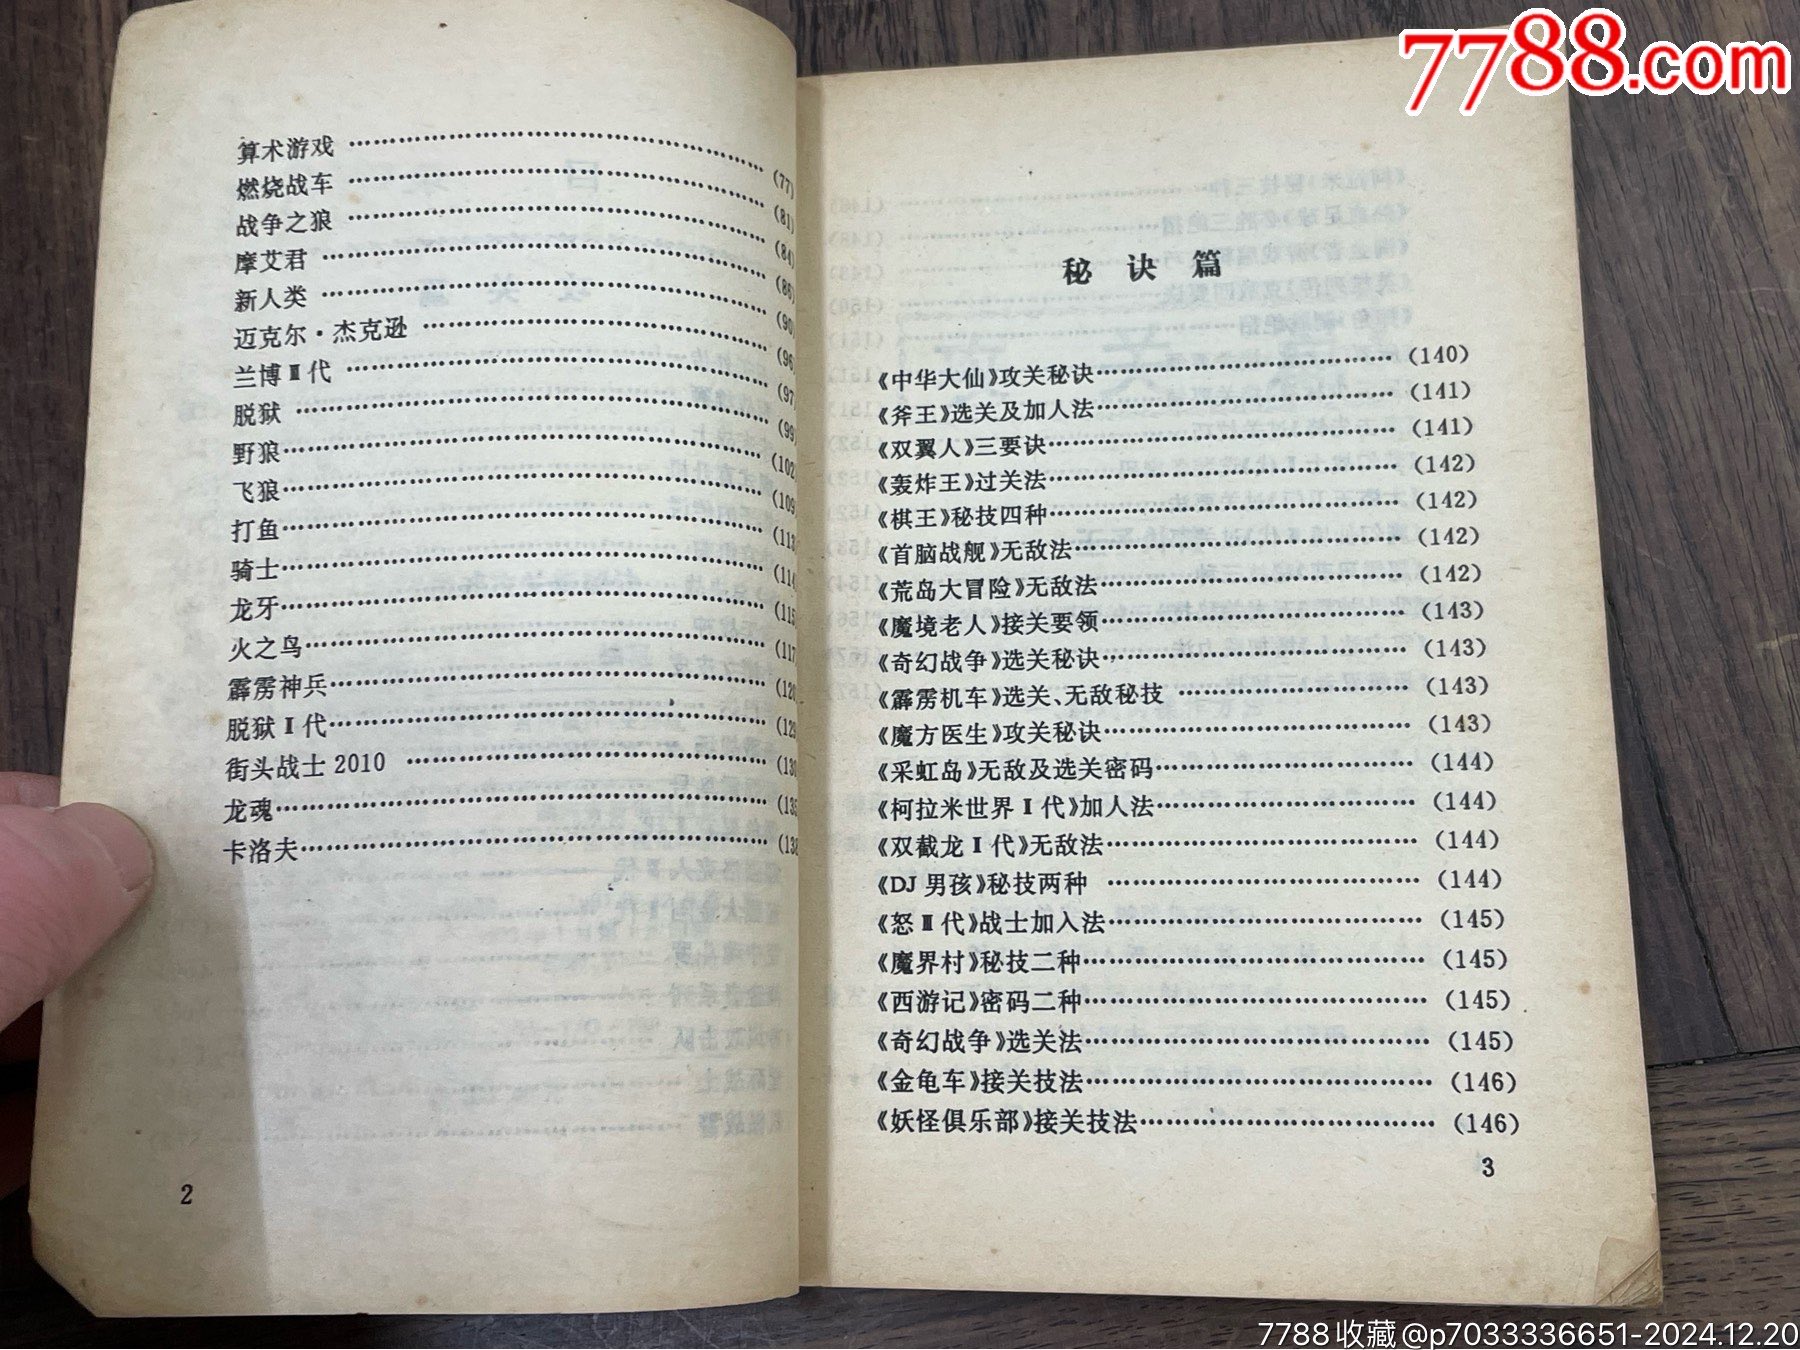 7788.com
算术游戏……………………………………………(77)
燃烧战车……………………………………………(81)
战争之狼……………………………………………(84)
摩艾君………………………………………………(86)
新人类………………………………………………(90)
迈克尔·杰克逊……………………………………(96
兰博Ⅲ代……………………………………………(97)
脱狱…………………………………………………(99)
野狼…………………………………………………(102
飞狼…………………………………………………(109
打鱼…………………………………………………(113
骑士…………………………………………………(114
龙牙…………………………………………………(115
火之鸟………………………………………………(117
霹雳神兵……………………………………………(120
脱狱Ⅰ代……………………………………………(129
街头战士2010 ……………………………………(130
龙魂…………………………………………………(135
卡洛夫………………………………………………(138
2
秘诀篇
《中华大仙》攻关秘诀……………………………(140)
《斧王》选关及加人法……………………………(141)
《双翼人》三要诀…………………………………(141)
《轰炸王》过关法…………………………………(142)
《棋王》秘技四种…………………………………(142)
《首脑战舰》无敌法………………………………(142)
《荒岛大冒险》无敌法……………………………(142)
《魔境老人》接关要领……………………………(143)
《奇幻战争》选关秘诀……………………………(143)
《霹雳机车》选关、无敌秘技……………………(143)
《魔方医生》攻关秘诀……………………………(143)
《采虹岛》无敌及选关密码………………………(144)
《柯拉米世界Ⅰ代》加人法………………………(144)
《双截龙Ⅰ代》无敌法……………………………(144)
《DJ男孩》秘技两种 ……………………………(144)
《怒Ⅲ代》战士加入法……………………………(145)
《魔界村》秘技二种………………………………(145)
《西游记》密码二种………………………………(145)
《奇幻战争》选关法………………………………(145)
《金龟车》接关技法………………………………(146)
《妖怪俱乐部》接关技法…………………………(146)
3
7788收藏@p7033336651-2024.12.20